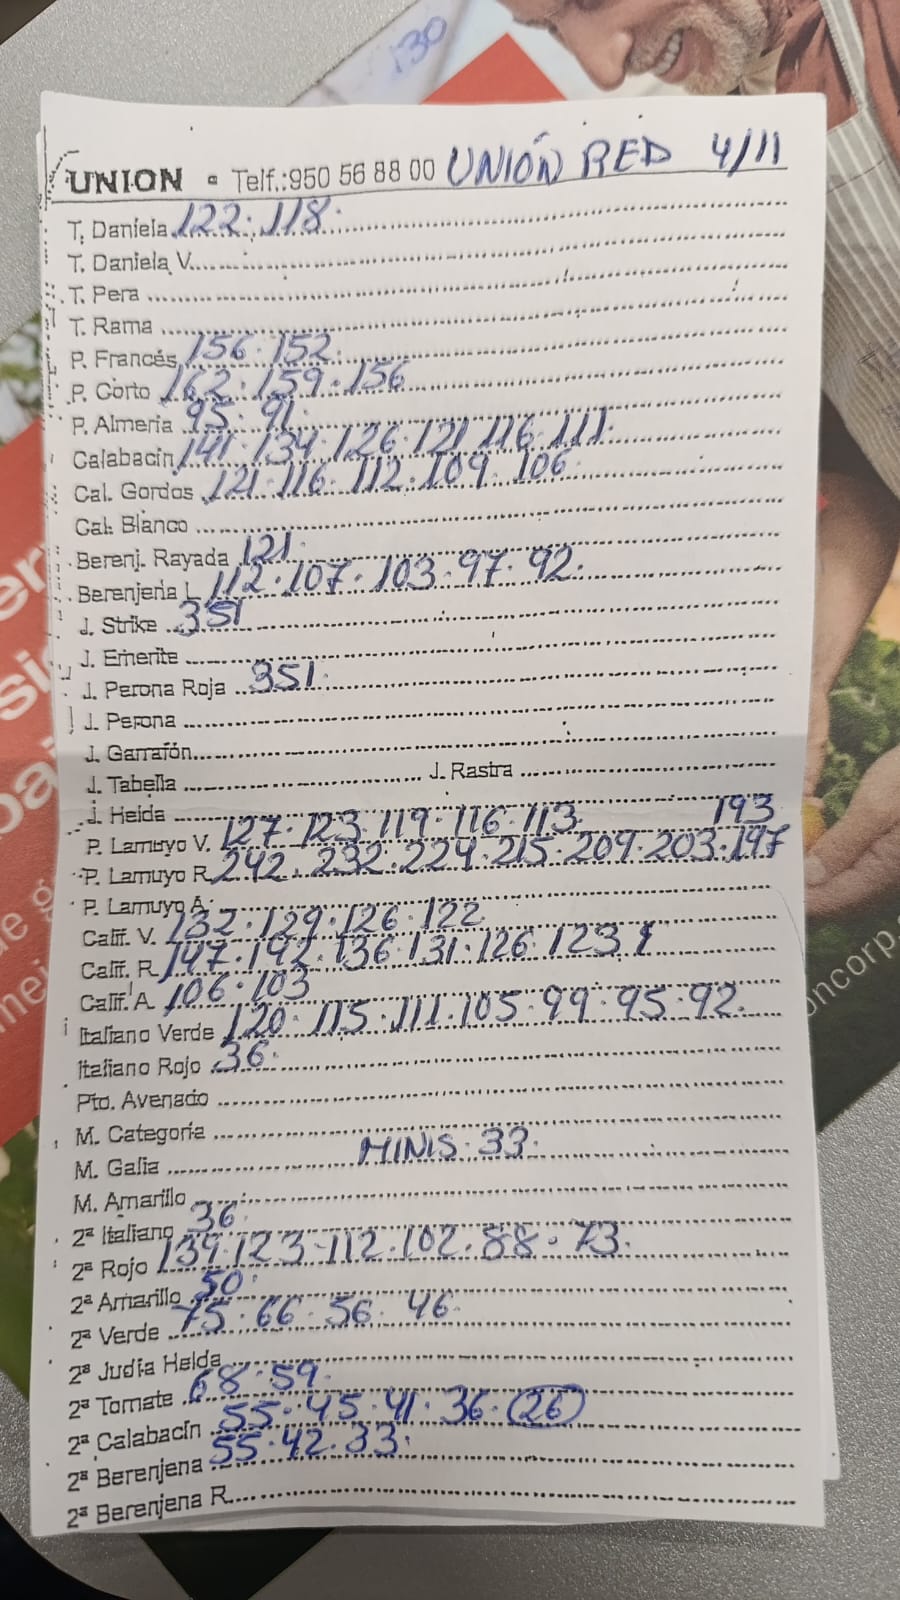 130
UNION - Telf.:950 56 88 00 UNIÓN RED 4/11
T. Daniela 122·118·
T. Daniela V.
T. Pera
T. Rama
P. Francés 156·152·
P. Corto 162·159·156
P. Almeria 95·91·
Calabacín 141·134·126·121·116·111·
Cal. Gordos 121·116·112·109·106·
Cal. Blanco
Berenj. Rayada 121·
Berenjena L 112·107·103·97·92·
J. Strike 351
J. Emerite
J. Perona Roja 351·
J. Perona
J. Garrafón
J. Tabella J. Rastra
J. Helda
P. Lamuyo V. 127·123·119·116·113· 193
P. Lamuyo R. 242·232·224·215·209·203·197
P. Lamuyo A.
Calif. V. 132·129·126·122
Calif. R. 147·142·136·131·126·123
Calif. A. 106·103
Italiano Verde 120·115·111·105·99·95·92·
Italiano Rojo 36·
Pto. Avenado
M. Categoría
M. Galia MINIS·33·
M. Amarillo
2ª Italiano 36·
2ª Rojo 139·123·112·102·88·73·
2ª Amarillo 50·
2ª Verde 75·66·56·46·
2ª Judía Helda
2ª Tomate 68·59·
2ª Calabacín 55·45·41·36·(26)
2ª Berenjena 55·42·33·
2ª Berenjena R.
oncorp.